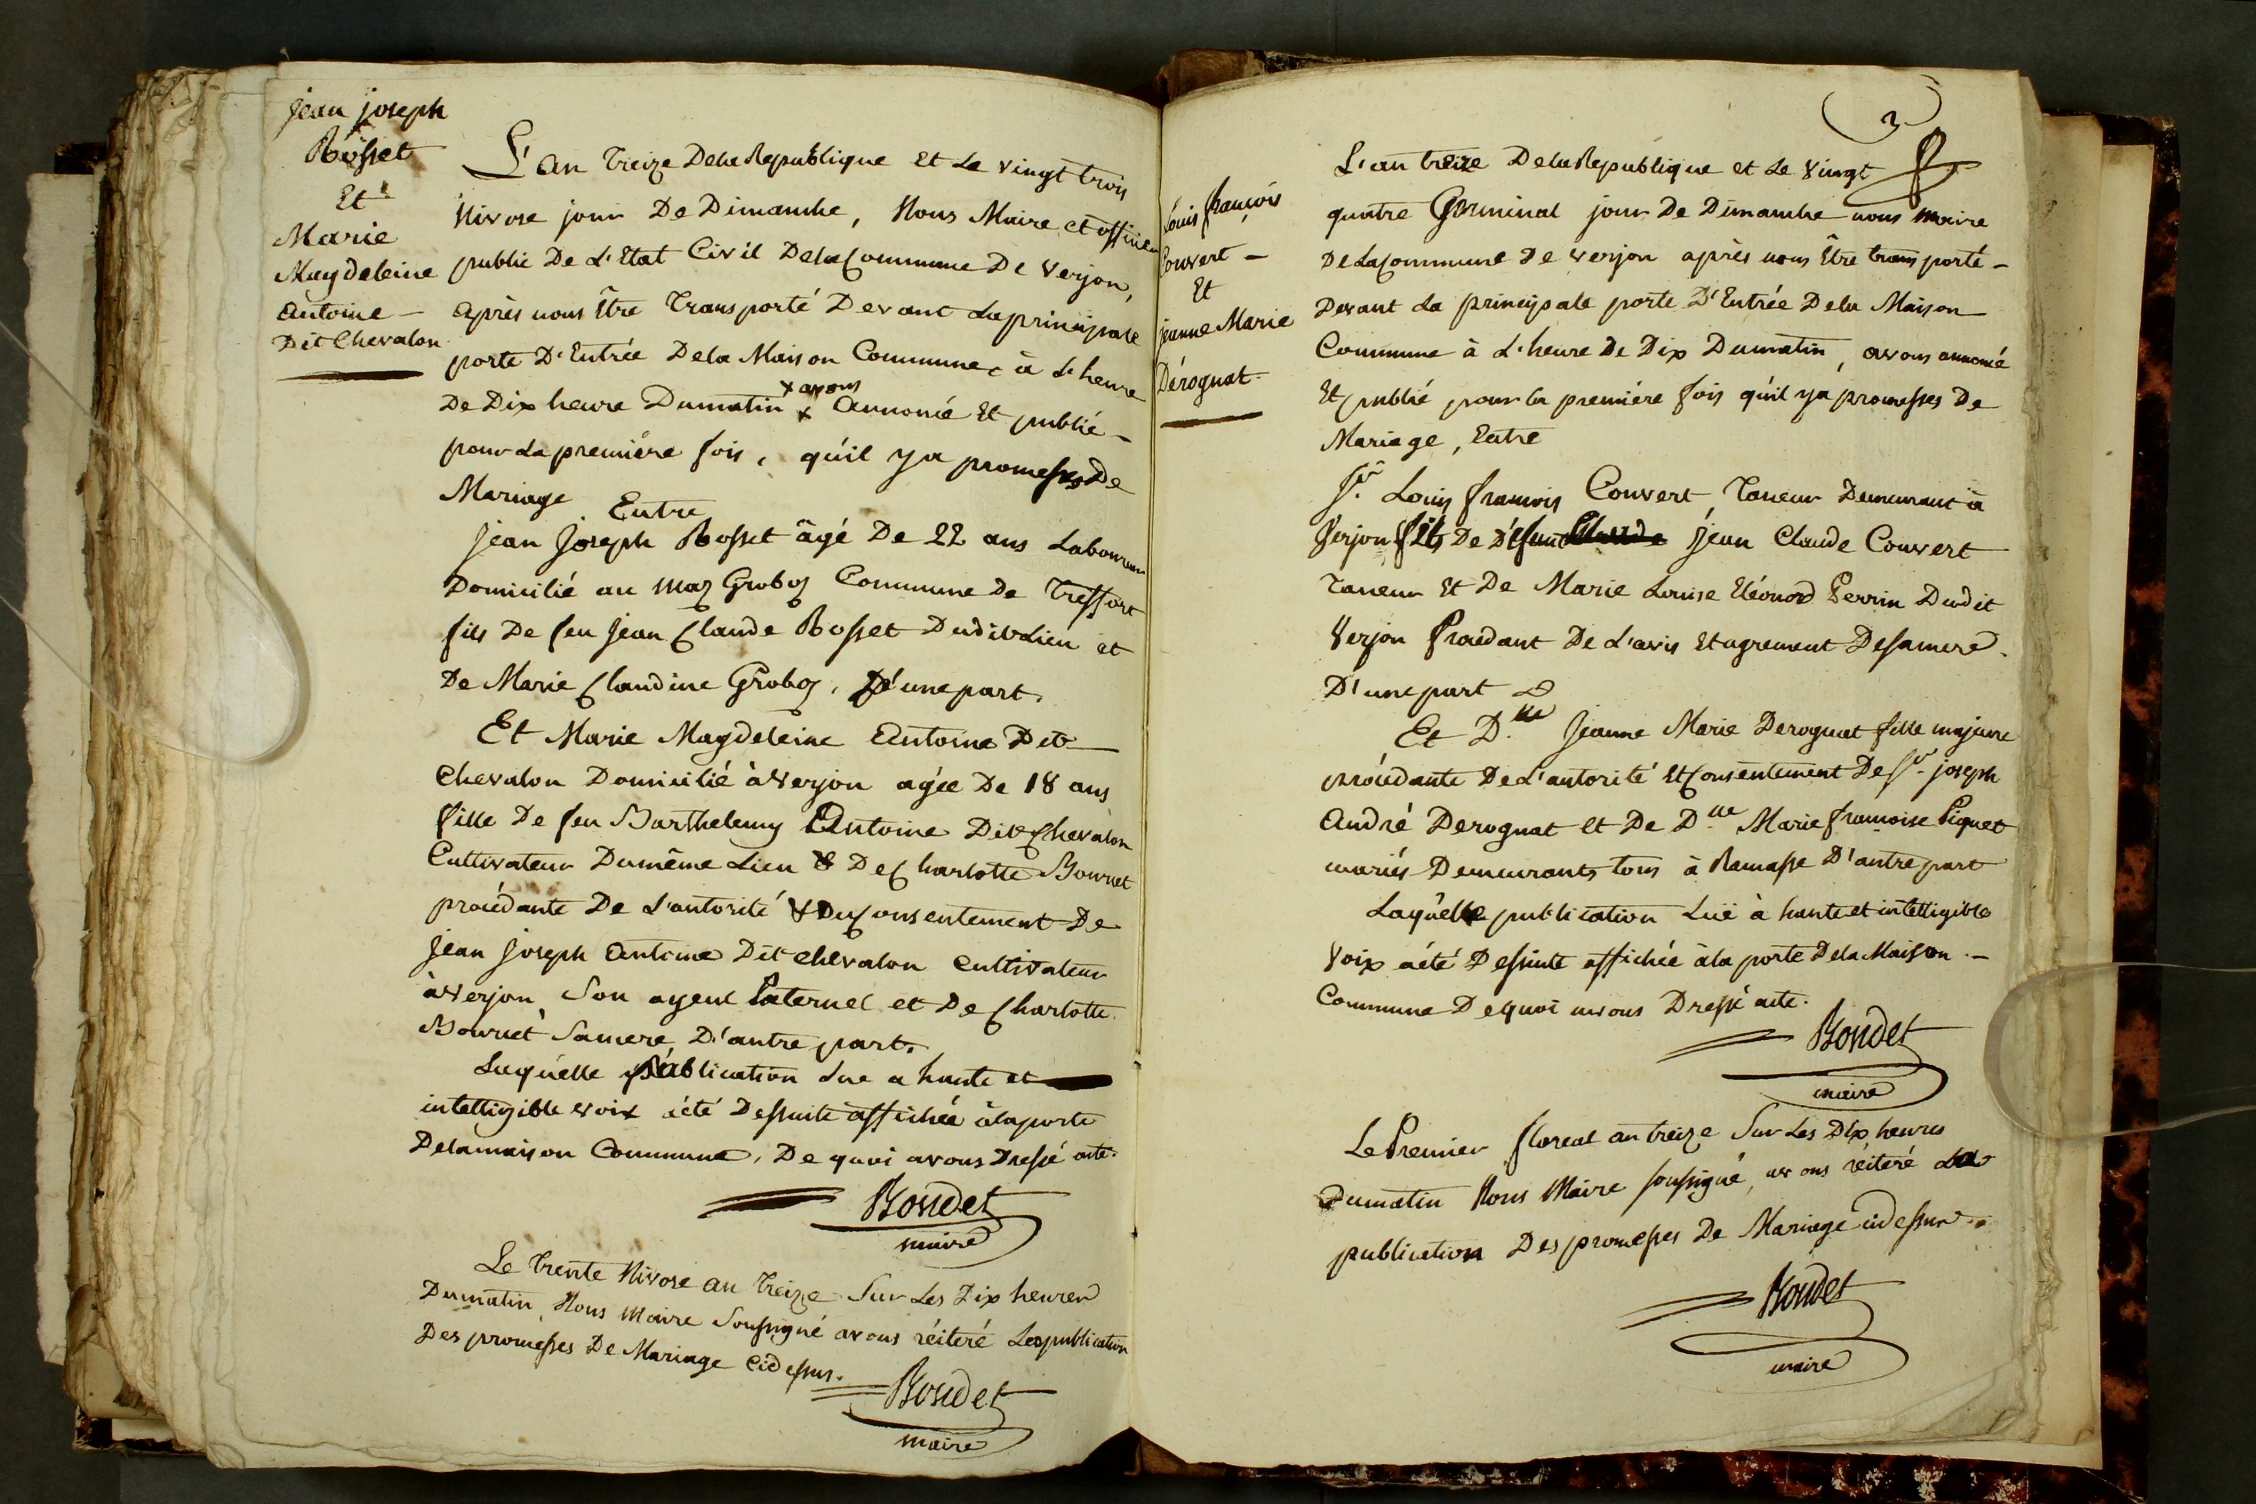 Jean joseph
Rosset
Et
Marie
Magdeleine
Antoine –
Dit Chevalon
L'an treize De la Republique Et Le vingt trois
Nivose jour De Dimanche, Nous Maire et officier
public De L'Etat Civil De la Commune De Verjon,
après nous Être Transporté Devant La principale
porte D'Entrée De la Maison Commune, à L'heure
De Dix heure Dumatin x avons x Annoncé Et publié –
pour La première fois, qu'il y a promesses De
Mariage Entre
Jean Joseph Rosset âgé De 22 ans Laboureur
Domicilié au Maz Groboz Commune De Treffort
fils De feu Jean Claude Rosset Dudit Lieu et
De Marie Claudine Groboz, D'une part.
Et Marie Magdeleine Antoine Dit
Chevalon Domicilié à Verjon agée De 18 ans
fille De feu Barthelemy Antoine Dit Chevalon
Cultivateur Du même Lieu & De Charlotte Bournet
procédante De L'autorité & Du Consentement De
Jean Joseph Antoine Dit Chevalon Cultivateur
à Verjon, Son ayeul Paternel et De Charlotte
Bournet Samere, D'autre part.
Laquélle publication Lue a haute et
intelligible voix a été Dessuite affichée à la porte
De la maison Commune, De quoi avons Dressé acte.
Boudet
maire
Le trente Nivose an treize Sur Les Dix heures
Dumatin, Nous Maire Soussigné avons réiteré La publication
Des promesses De Mariage Cidessus.
Boudet
maire
3
Louis françois
Convert –
Et
jeanne Marie
Dérognat
L'an treize De la Republique et Le vingt
quatre Germinal jour De Dimanche nous maire
De La Commune De verjon après nous Être transporté –
Devant La principale porte D'Entrée De la Maison
Commune à L'heure De Dix Dumatin, avons annoncé
Et publié pour la première fois qu'il y a promesses De
Mariage, Entre
Sr. Louis françois Convert, Taneur Demeurant à
Verjon fils De Défunt Jean Claude Convert
Taneur Et De Marie Louise Eléonord Perrin Dudit
Verjon Procédant De L'avis Et agrement De samere
D'une part
Et Dlle Jeanne Marie Derognat fille majeure
procédante De L'autorité Et Consentement De Sr. joseph
André Derognat et De Dlle Marie françoise Piquet
mariés Demeurants tous à Ramasse D'autre part
Laquelle publication Luë à haute et intelligible
Voix a été Dessuite affichée à la porte De la Maison –
Commune De quoi avons Dressé acte.
Boudet
maire
Le Premier floreal an treize Sur Les Dix heures
Dumatin Nous Maire soussigné, avons réiteré La
publication Des promesses De Mariage cidessus.
Boudet
maire